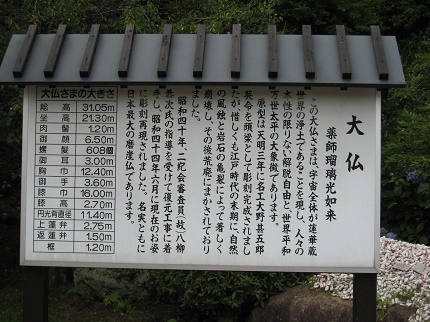 大仏
薬師瑠璃光如来
この大仏さまは、宇宙全体が蓮華蔵
世界の浄土であることを現し、人々の
本性の限りない解脱自由と、世界平和
万世太平の大象徴であります。
原型は天明三年に名工大野甚五郎
英令を頭梁として彫刻完成されまし
たが、惜しくも江戸時代の末期に、自然
の風蝕と岩石の亀裂によって著しく
崩壊し、その後荒廃にまかされており
ました。
昭和四十年、二紀会審査員(故)八柳
恭次氏の指導を受けて復元工事に着
手し、昭和四十四年六月に現在のお姿
に彫刻再現されました。名実ともに
日本最大の磨崖仏であります。
大仏さまの大きさ
総高 31.05m
坐高 21.30m
肉髻 1.20m
御顔 6.50m
螺髪 608個
御耳 3.00m
胸巾 12.40m
御手 3.60m
膝巾 16.00m
膝高 2.70m
円光背直径 11.40m
上蓮弁 2.75m
返蓮弁 1.50m
框 1.20m